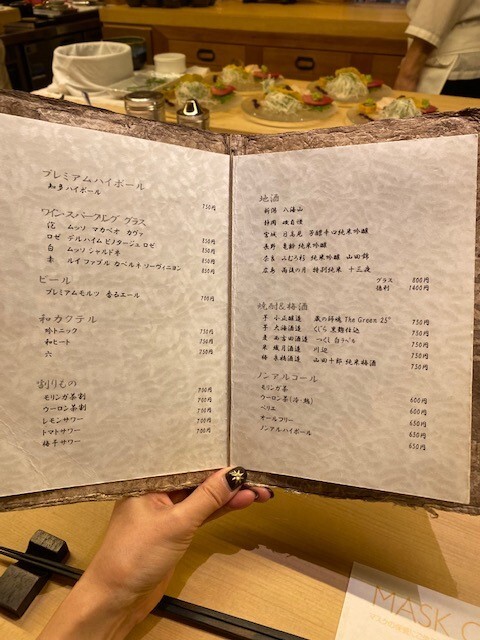 プレミアムハイボール
知多ハイボール 750円
ワイン・スパークリング グラス
泡 ムッソ マカベオ カヴァ 850円
ロゼ デルハイム ピノタージュ ロゼ 850円
白 ムッソ シャルドネ 850円
赤 ルイ ファブル カベルネ ソーヴィニヨン 850円
ビール
プレミアムモルツ 香るエール 700円
和カクテル
吟トニック 750円
和ヒート 750円
六 750円
割りもの
モリンガ茶割 750円
ウーロン茶割 700円
レモンサワー 750円
トマトサワー 700円
梅子サワー 700円
地酒
新潟 八海山
静岡 磯自慢
宮城 日高見 芳醇辛口純米吟醸
長野 亀齢 純米吟醸
奈良 みむろ杉 純米吟醸 山田錦
広島 雨後の月 特別純米 十三夜
グラス 800円
徳利 1400円
焼酎&梅酒
芋 小正醸造 蔵の師魂 The Green 25° 750円
芋 大海酒造 くじら 黒麹仕込 750円
麦 南吉田酒造 つくし 白ラベル 750円
米 繊月酒造 川辺 750円
梅 来福酒造 山田十郎 純米梅酒 750円
ノンアルコール
モリンガ茶 600円
ウーロン茶(冷・熱) 600円
ペリエ 650円
オールフリー 650円
ノンアルハイボール 650円
MASK C